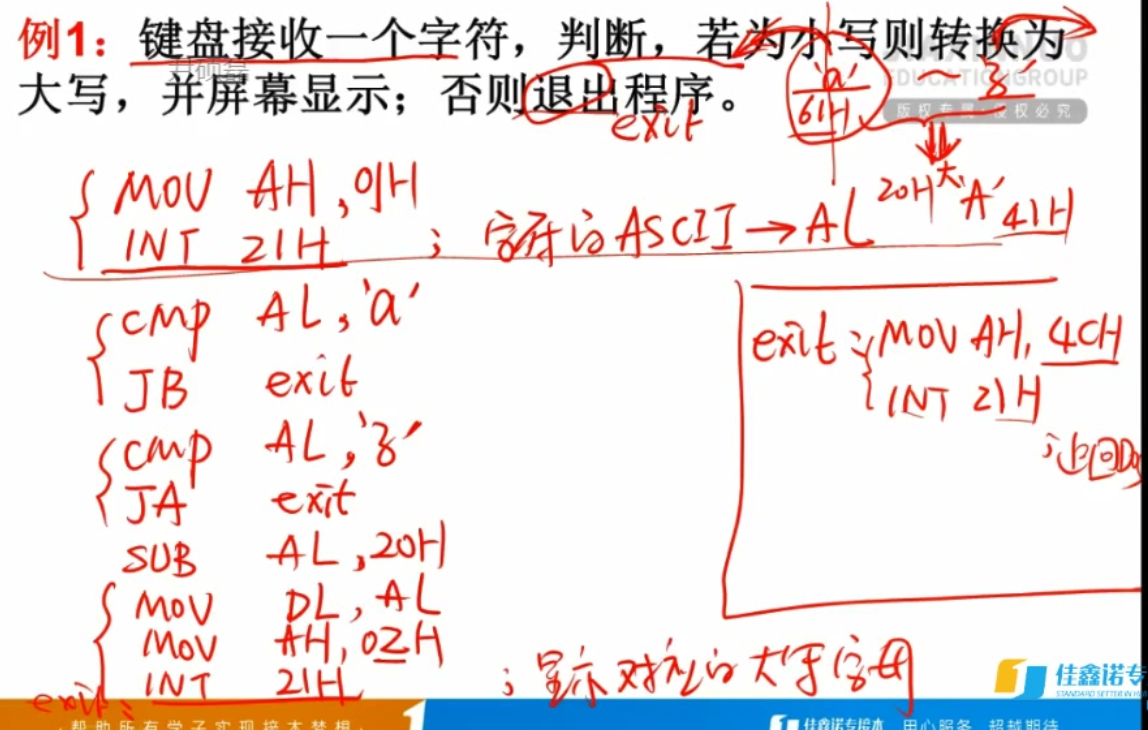 例1：键盘接收一个字符，判断，若为小写则转换为
大写，并屏幕显示；否则退出程序。
exit
'a'
61H
'z'
EDUCATIONGROUP
版权专属 侵权必究
20H
大 'A' 41H
MOV AH,01H
INT 21H ; 字符的ASCII→AL
CMP AL,'a'
JB exit
CMP AL,'z'
JA exit
SUB AL,20H
MOV DL,AL
MOV AH,02H
INT 21H ; 显示对应的大写字母
exit:
exit: MOV AH,4CH
INT 21H
;返回Dos
佳鑫诺专
帮助所有学子实现接本梦想
佳鑫诺专接本 用心服务 超越期待